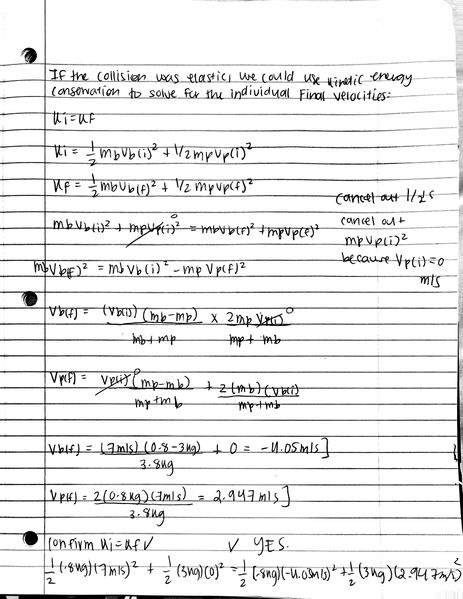 If the collision was elastic, we could use kinetic energy
conservation to solve for the individual final velocities:
Ki = Kf
Ki = 1/2 mbvb(i)² + 1/2 mpvp(i)²
Kf = 1/2 mbvb(f)² + 1/2 mpvp(f)²
cancel out 1/2s
mbvb(i)² + mpvp(i)² 0 = mbvb(f)² + mpvp(f)²
cancel out
mpvp(i)²
because vp(i) = 0
m/s
mbvb(f)² = mbvb(i)² - mpvp(f)²
vb(f) = (vb(i)) (mb-mp) / mb+mp x 2mp vp(i) 0 / mp + mb
vp(f) = vp(i) 0 (mp-mb) / mp+mb + 2(mb)(vb(i)) / mp+mb
vb(f) = (7m/s) (0.8-3kg) / 3.8kg + 0 = -4.05m/s]
vp(f) = 2(0.8kg)(7m/s) / 3.8kg = 2.947m/s]
confirm Ki = Kf ✓ ✓ YES.
1/2 (.8kg)(7m/s)² + 1/2 (3kg)(0)² = 1/2 (.8kg)(-4.05m/s)² + 1/2 (3kg)(2.947m/s)²